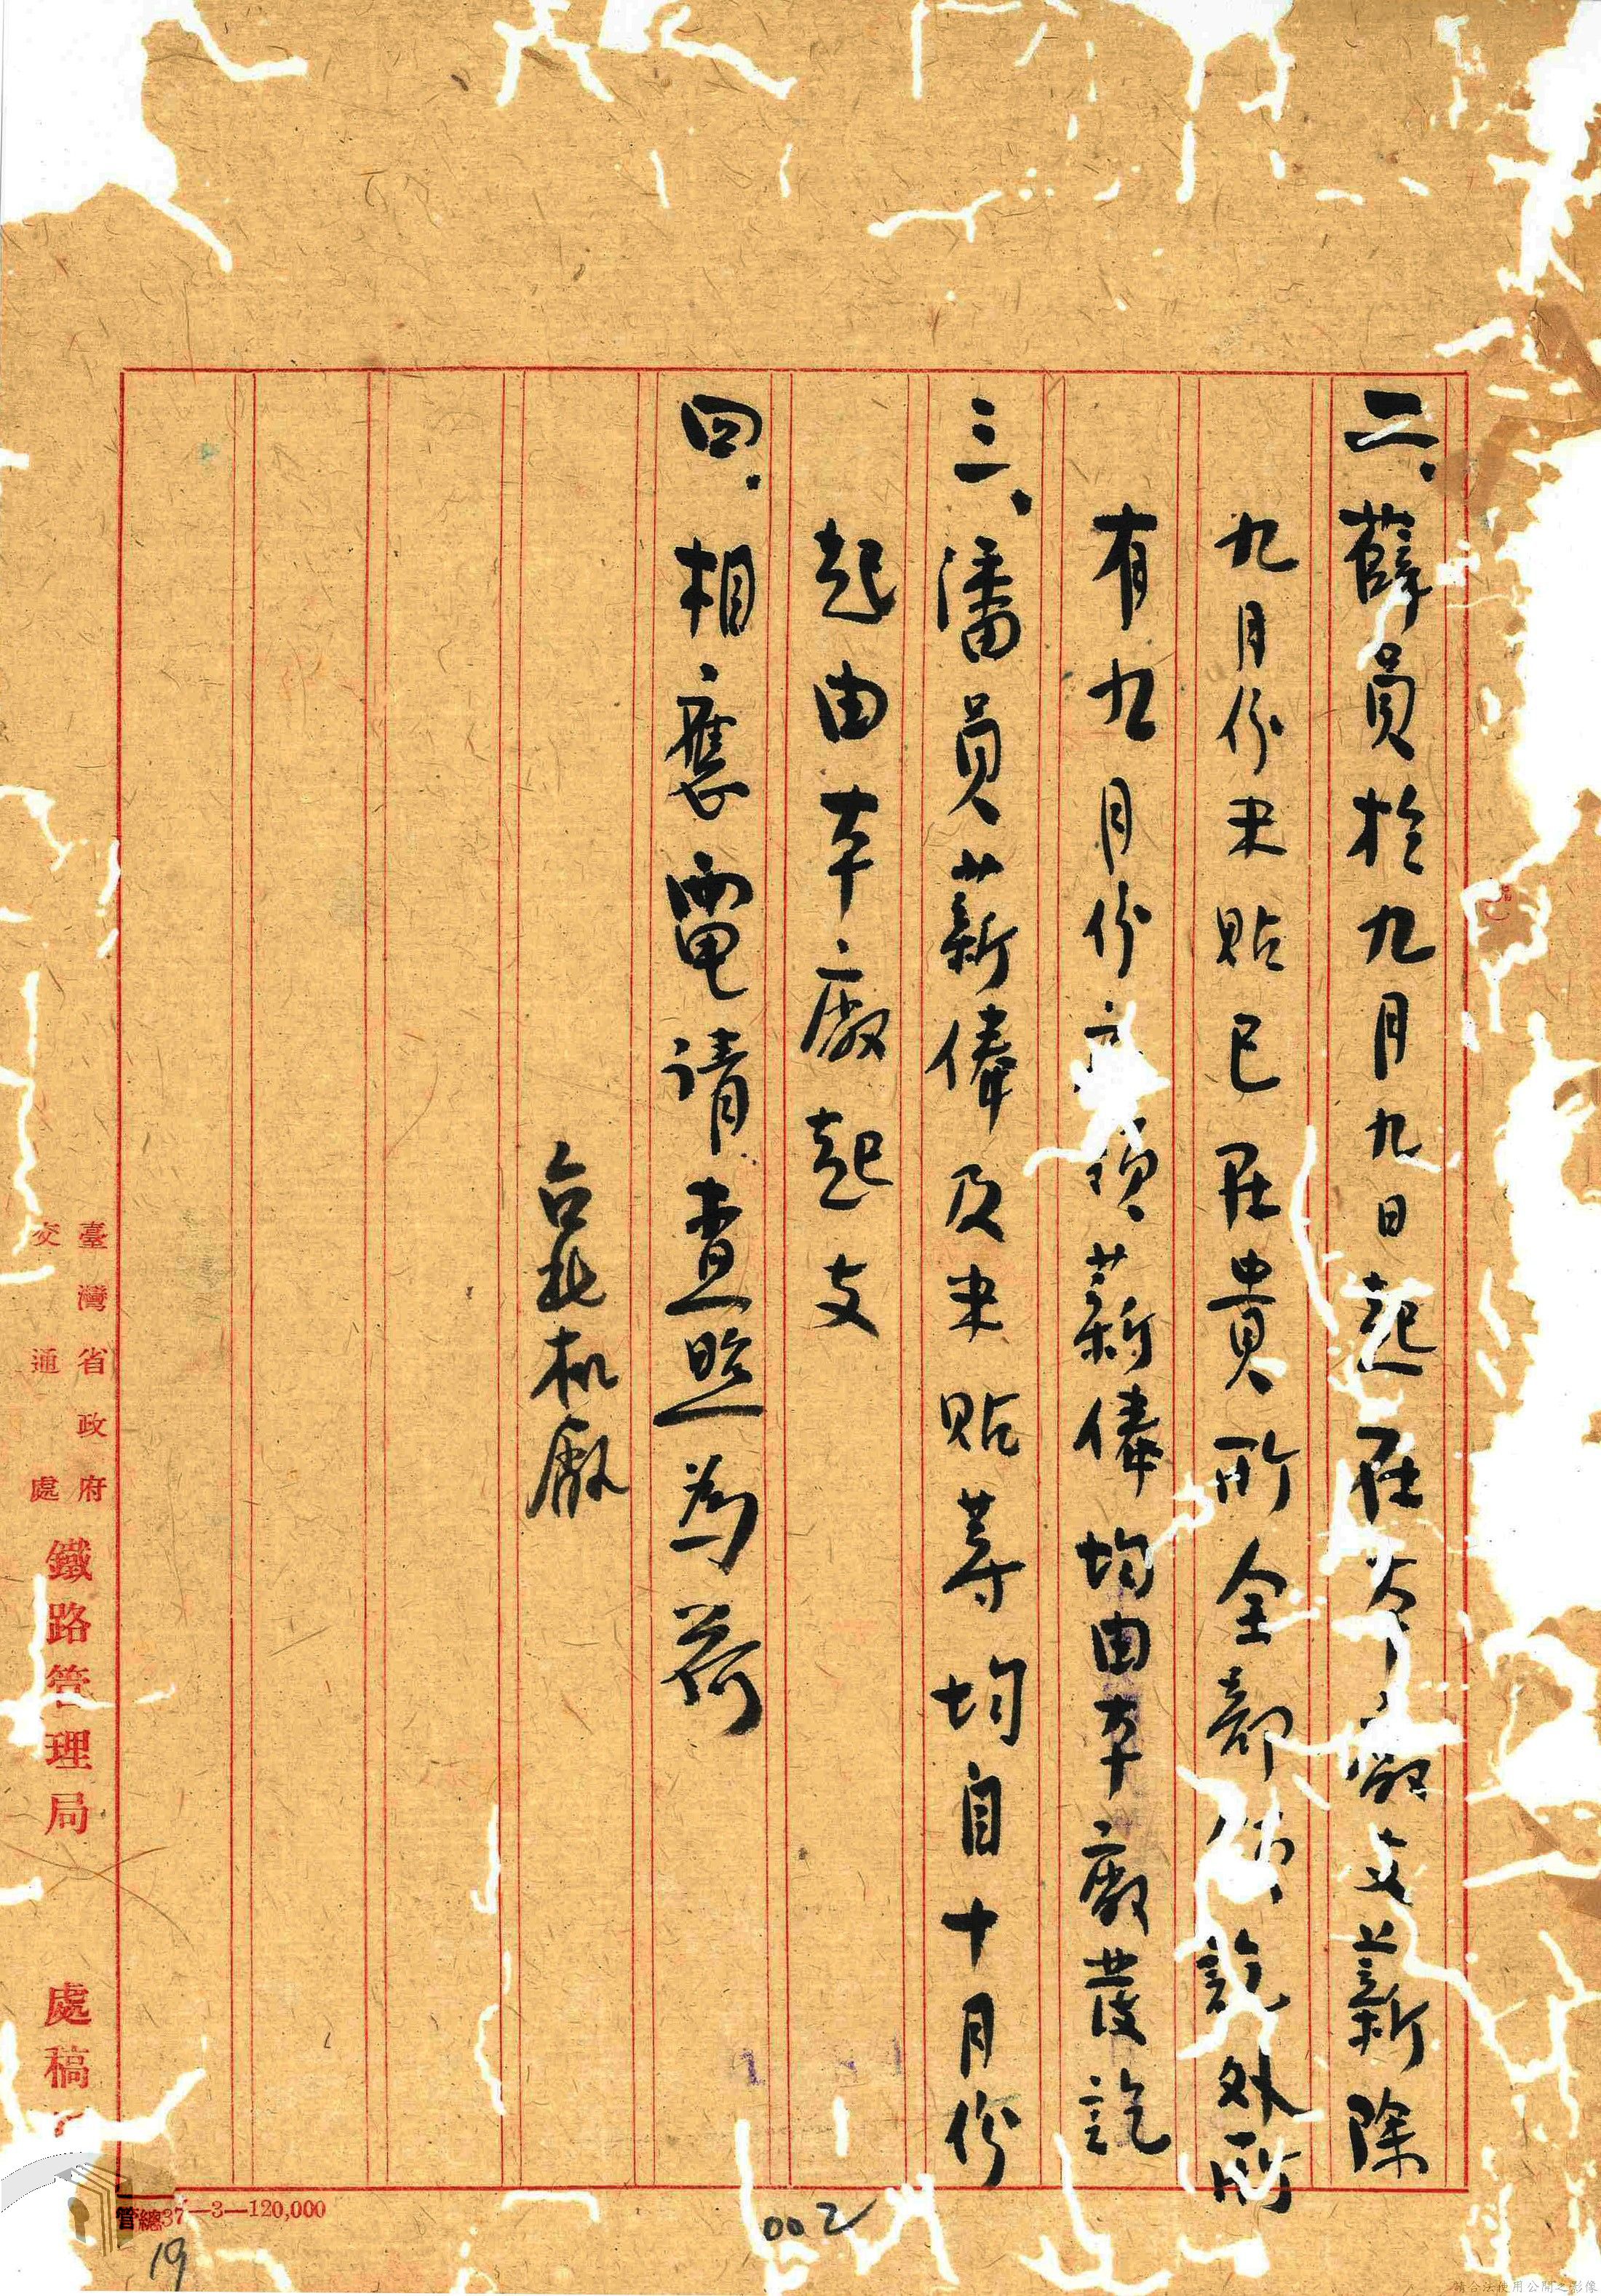 二、薛員於九月九日起在本廠支薪除
九月份米貼已在貴所全部領訖外所
有九月份應領薪俸均由本廠發訖
三、潘員薪俸及米貼等均自十月份
起由本廠起支
四、相應電請查照為荷
台北机廠
臺灣省政府
交通處
鐵路管理局 處稿
管總37—3—120,000
002
19
請合法使用公開之影像